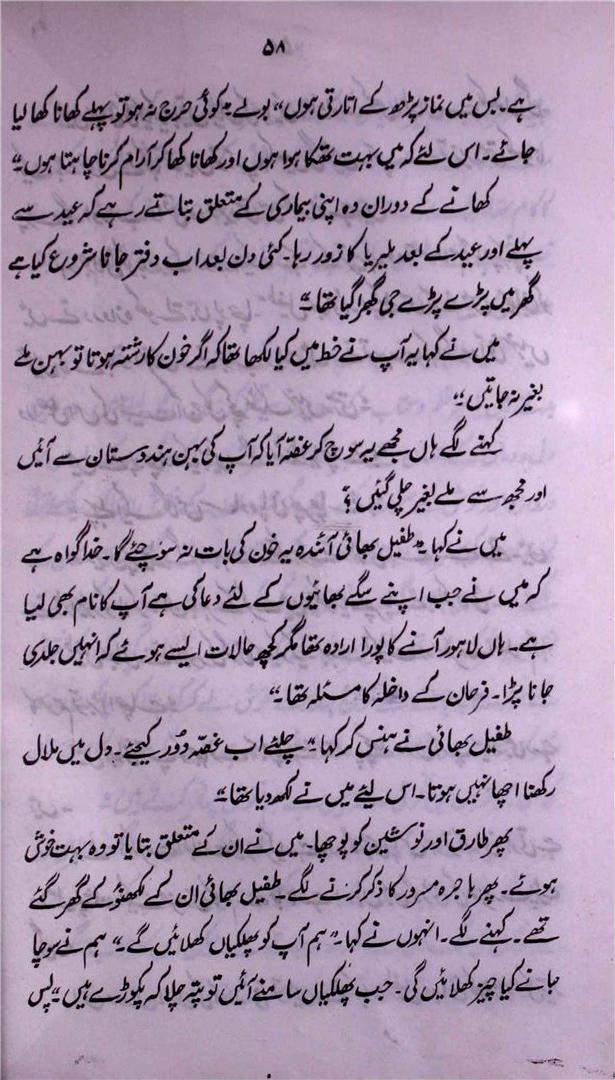 ۵۸
ہے۔ بس میں نماز پڑھ کے اتارتی ہوں“ بولے ”کوئی حرج نہ ہو تو پہلے کھانا کھا لیا
جائے۔ اس لئے کہ میں بہت تھکا ہوا ہوں اور کھانا کھا کر آرام کرنا چاہتا ہوں۔“
کھانے کے دوران وہ اپنی بیماری کے متعلق بتاتے رہے کہ عید سے
پہلے اور عید کے بعد ملیریا کا زور رہا۔ کئی دن بعد اب دفتر جانا شروع کیا ہے
گھر میں پڑے پڑے جی گھبرا گیا تھا۔“
میں نے کہا یہ آپ نے خط میں کیا لکھا تھا کہ اگر خون کا رشتہ ہوتا تو بہن ملے
بغیر نہ جاتیں۔“
کہنے لگے ہاں مجھے یہ سوچ کر غصّہ آیا کہ آپ کی بہن ہندوستان سے آئیں
اور مجھ سے ملے بغیر چلی گئیں؟“
میں نے کہا۔ ”طفیل بھائی آئندہ یہ خون کی بات نہ سوچئے گا۔ خدا گواہ ہے
کہ میں نے جب اپنے سگے بھائیوں کے لئے دعا کی ہے آپ کا نام بھی لیا
ہے۔ ہاں لاہور آنے کا پورا ارادہ تھا مگر کچھ حالات ایسے ہوئے کہ انہیں جلدی
جانا پڑا۔ فرحان کے داخلہ کا مسئلہ تھا۔“
طفیل بھائی نے ہنس کر کہا۔ ”چلئے اب غصّہ دُور کیجئے۔ دل میں ملال
رکھنا اچھا نہیں ہوتا۔ اس لیئے میں نے لکھ دیا تھا۔“
پھر طارق اور نوشین کو پوچھا۔ میں نے ان کے متعلق بتایا تو وہ بہت خوش
ہوئے۔ پھر ہاجرہ مسرور کا ذکر کرنے لگے۔ طفیل بھائی ان کے لکھنؤ کے گھر گئے
تھے۔ کہنے لگے۔ انہوں نے کہا۔ ”ہم آپ کو پھلکیاں کھلائیں گے۔“ ہم نے سوچا
جانے کیا چیز کھلائیں گی۔ جب پھلکیاں سامنے آئیں تو پتہ چلا کہ پکوڑے ہیں۔“ بس